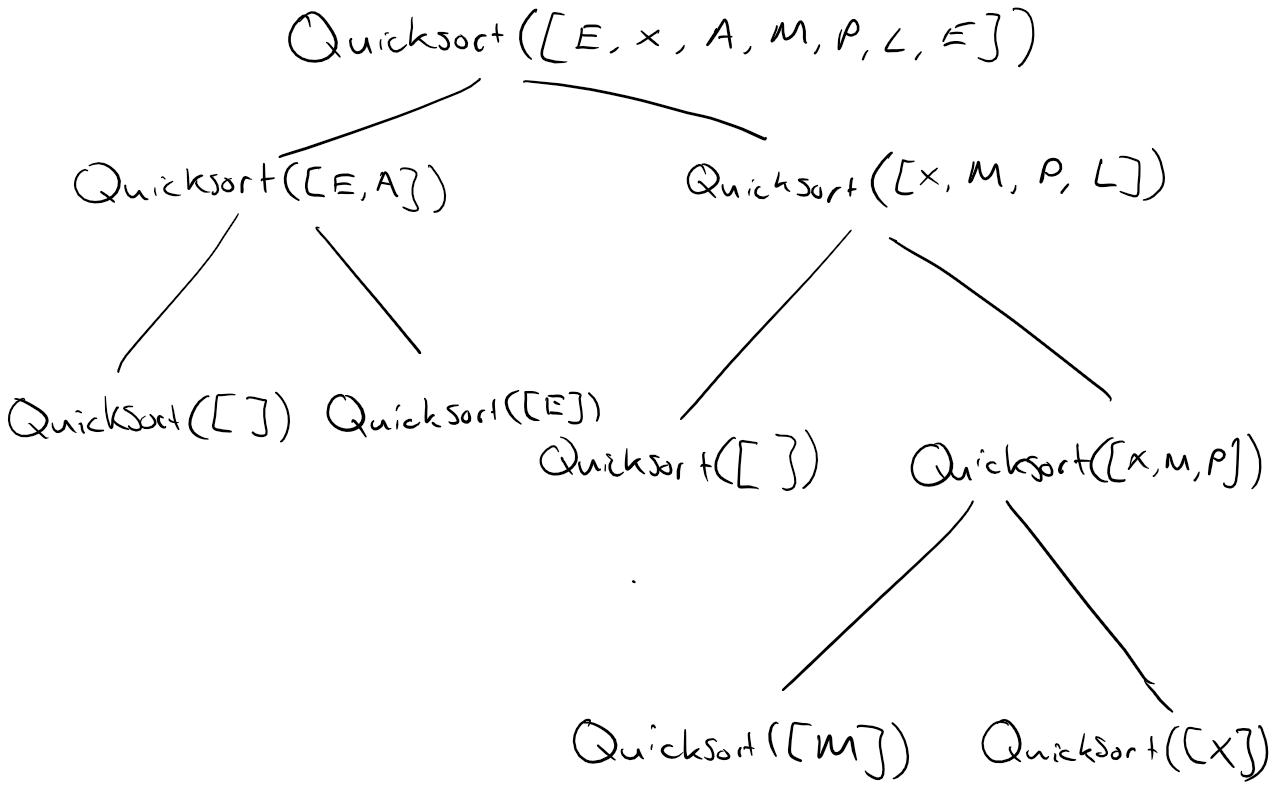 Quicksort([E, X, A, M, P, L, E])
Quicksort([E, A])
Quicksort([X, M, P, L])
Quicksort([ ])
Quicksort([E])
Quicksort([ ])
Quicksort([X, M, P])
Quicksort([M])
Quicksort([X])